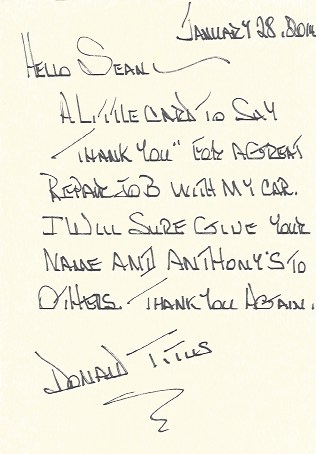 JANUARY 28, 2014
HELLO SEAN
A LITTLE CARD TO SAY
"THANK YOU" FOR A GREAT
REPAIR JOB WITH MY CAR.
I WILL SURE GIVE YOUR
NAME AND ANTHONY'S TO
OTHERS. THANK YOU AGAIN.
DONALD TITUS